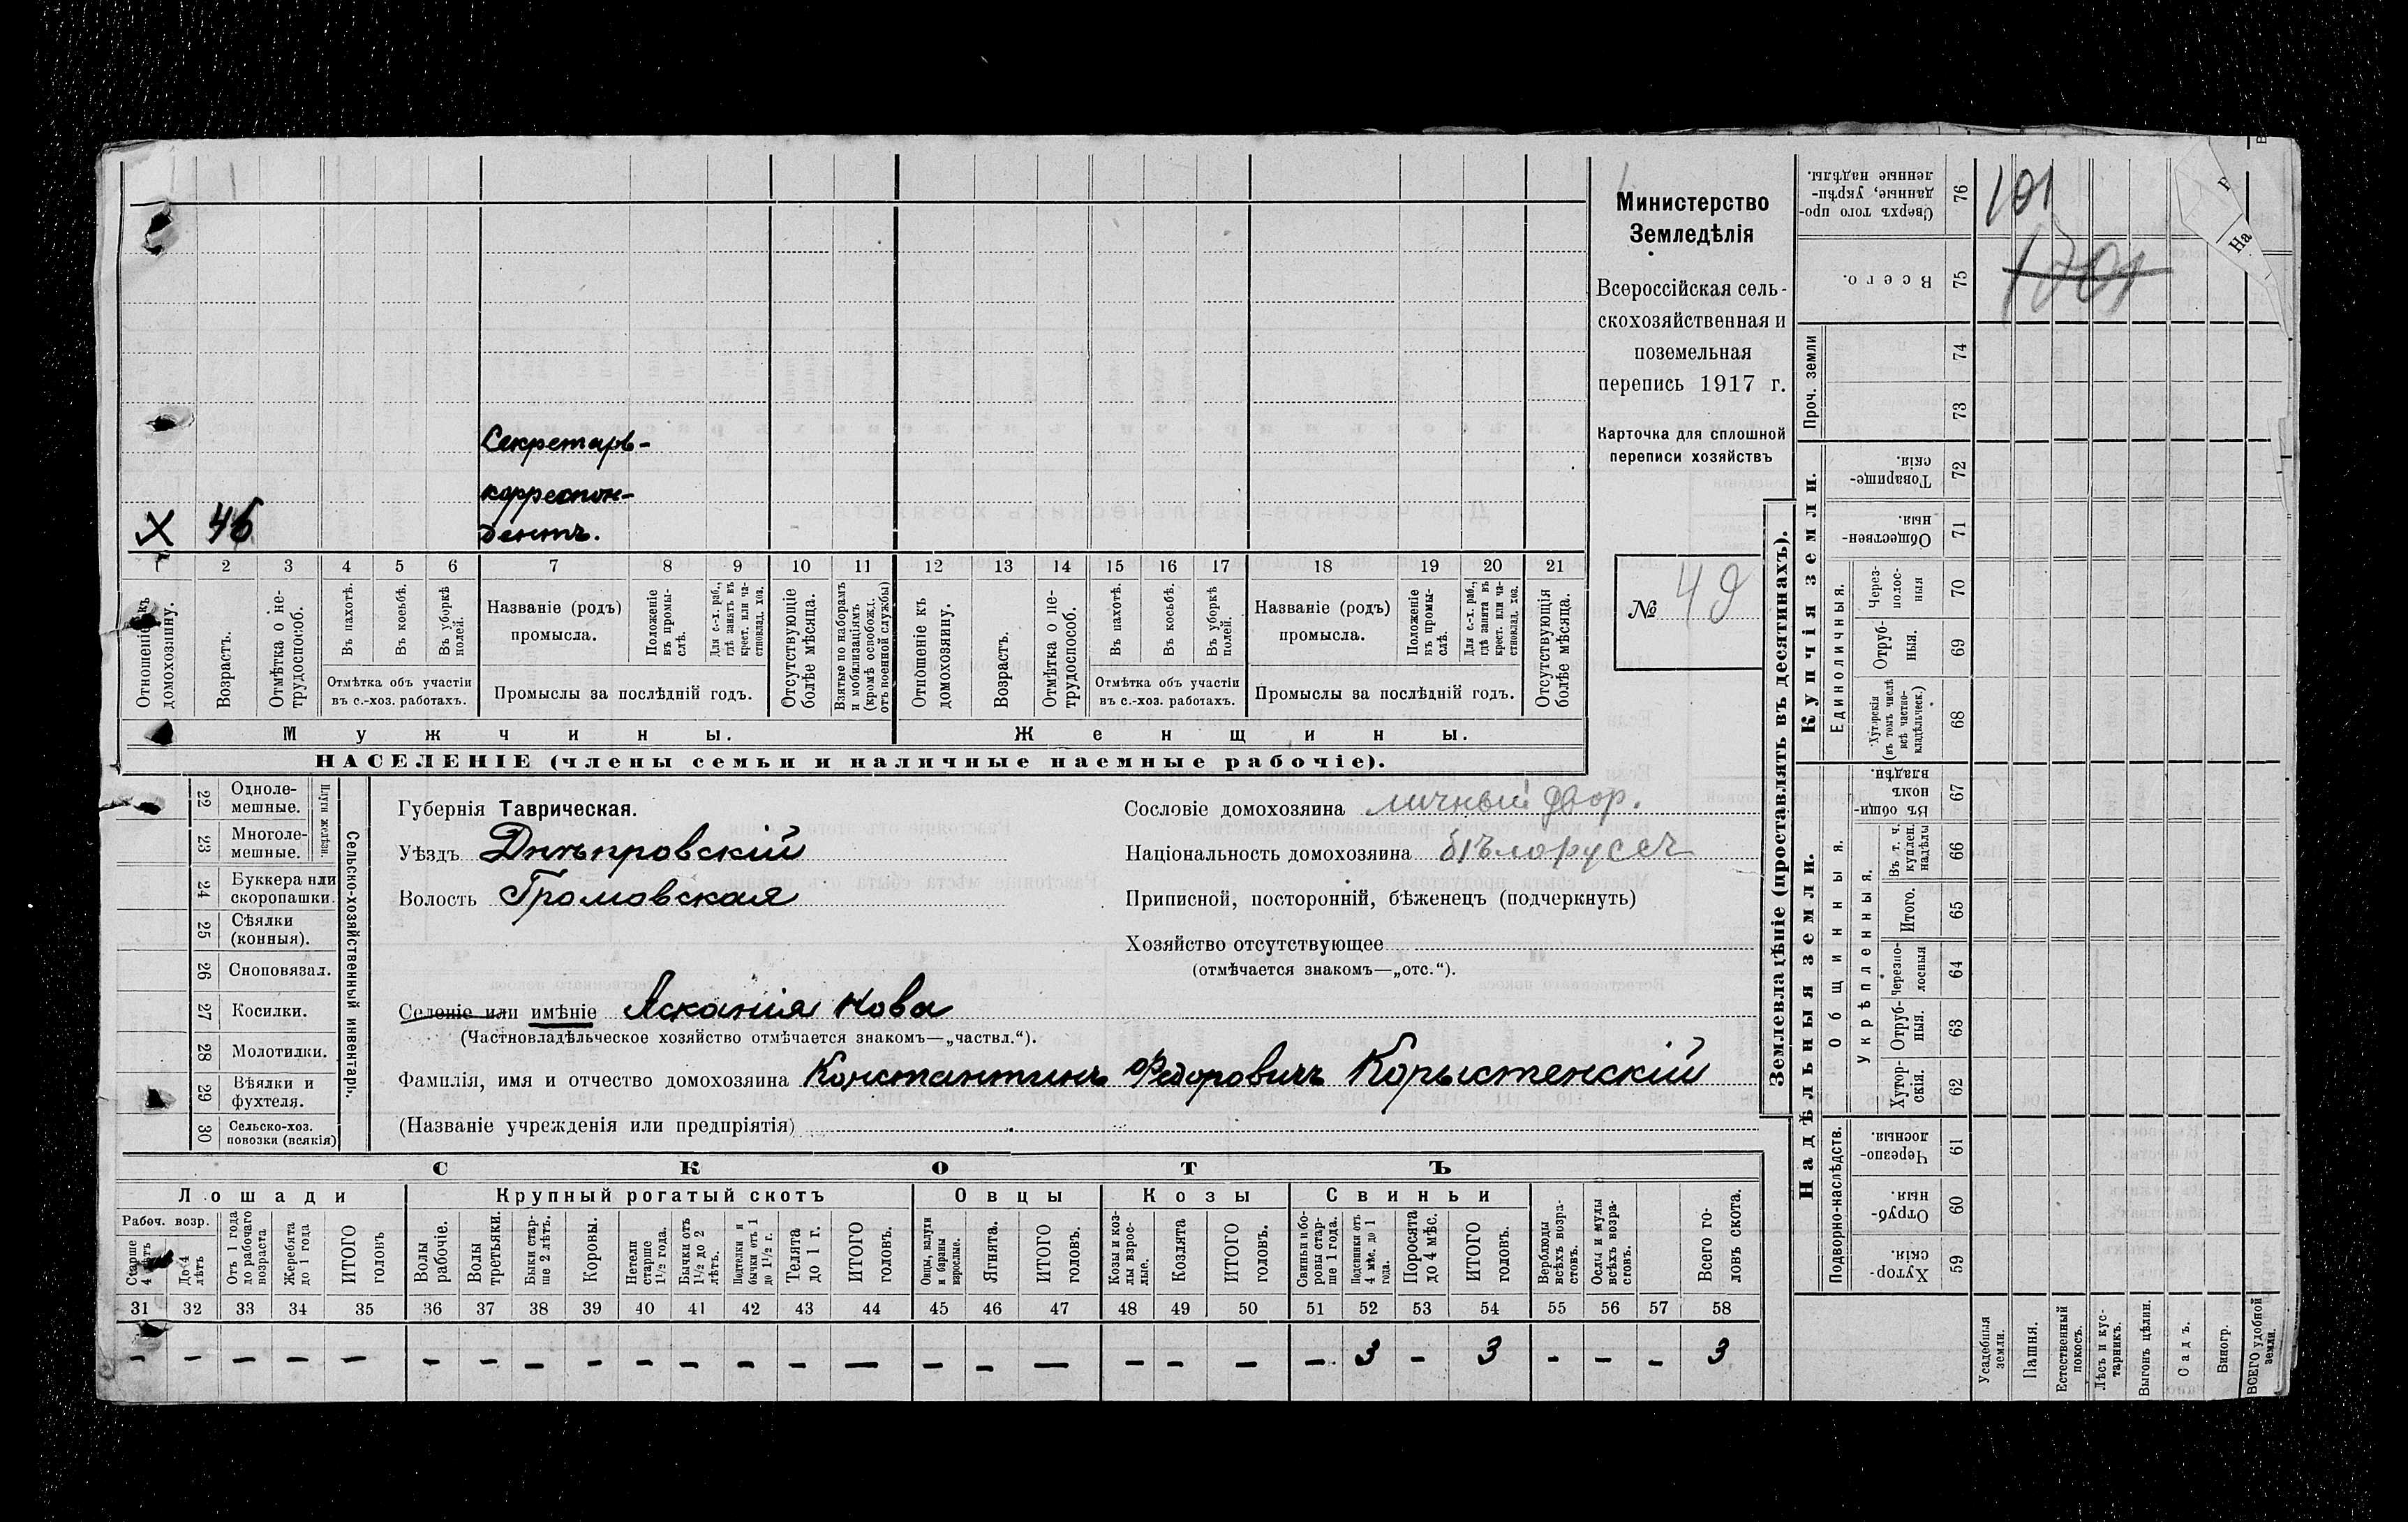 Секретарь-
корреспон-
X 46 дентъ.
1 2 3 4 5 6 7 8 9 10 11 12 13 14 15 16 17 18 19 20 21
Отношеніе къ домохозяину.
Возрастъ.
Отмѣтка о не-трудоспособ.
Въ пахотѣ.
Въ косьбѣ.
Въ уборкѣ полей.
Отмѣтка объ участіи
въ с.-хоз. работахъ.
Названіе (родъ)
промысла.
Положеніе въ промы-слѣ.
Для с.-х. раб., гдѣ занятъ въ крест. или ча-стновлад. хоз.
Промыслы за послѣдній годъ.
Отсутствующіе болѣе мѣсяца.
Взятые по наборамъ и мобилизаціямъ (кромѣ освобожд. отъ военной службы)
Отношеніе къ домохозяину.
Возрастъ.
Отмѣтка о не-трудоспособ.
Въ пахотѣ.
Въ косьбѣ.
Въ уборкѣ полей.
Отмѣтка объ участіи
въ с.-хоз. работахъ.
Названіе (родъ)
промысла.
Положеніе въ промы-слѣ.
Для с.-х. раб., гдѣ занята въ крест. или ча-стновлад. хоз.
Промыслы за послѣдній годъ.
Отсутствующія болѣе мѣсяца.
Мужчины.
Женщины.
НАСЕЛЕНІЕ (члены семьи и наличные наемные рабочіе).
Министерство
Земледѣлія
Всероссійская сель-
скохозяйственная и
поземельная
перепись 1917 г.
Карточка для сплошной
переписи хозяйствъ
№ 49
22 Одноле-мешные.
23 Многоле-мешные.
Плуги желѣзн.
24 Буккера или скоропашки.
25 Сѣялки (конныя).
26 Сноповязал.
27 Косилки.
28 Молотилки.
29 Вѣялки и фухтеля.
30 Сельско-хоз. повозки (всякія)
Сельско-хозяйственный инвентарь.
Губернія Таврическая.
Уѣздъ Днѣпровскій
Волость Громовская
Селеніе или имѣніе Асканія Нова
(Частновладѣльческое хозяйство отмѣчается знакомъ—„частвл.“).
Фамилія, имя и отчество домохозяина Константинъ Федоровичъ Корыстенскій
(Названіе учрежденія или предпріятія)
Сословіе домохозяина личный двор.
Національность домохозяина бѣлорусъ
Приписной, посторонній, бѣженецъ (подчеркнуть)
Хозяйство отсутствующее
(отмѣчается знакомъ—„отс.“).
СКОТЪ
Лошади
Крупный рогатый скотъ
Овцы
Козы
Свиньи
Рабоч. возр.
Старше 4 лѣтъ
До 4 лѣтъ
Отъ 1 года до рабочаго возраста
Жеребята до 1 года
ИТОГО головъ
Волы рабочіе.
Волы третьяки.
Быки стар-ше 2 лѣтъ.
Коровы.
Нетели старше 1½ года.
Бычки отъ 1½ до 2 лѣтъ.
Подтелки и бычки отъ 1 до 1½ г.
Телята до 1 г.
ИТОГО головъ.
Овцы, валухи и бараны взрослые.
Ягнята.
ИТОГО головъ.
Козы и коз-лы взрос-лые.
Козлята
ИТОГО головъ.
Свиньи и бо-ровы стар-ше 1 года.
Подсвинки отъ 4 мѣс. до 1 года.
Поросята до 4 мѣс.
ИТОГО головъ.
Верблюды всѣхъ возра-стовъ.
Ослы и мулы всѣхъ возра-стовъ.
Всего го-ловъ скота.
31 32 33 34 35 36 37 38 39 40 41 42 43 44 45 46 47 48 49 50 51 52 53 54 55 56 57 58
– – – – – – – – – – – – – – – – – – – – – 3 – 3 – – – 3
Землевладѣніе (проставлять въ десятинахъ).
Сверхъ того про-данные, укрѣп-ленные надѣлы. 76 101
Всего. 75 1701
Проч. земли
74
73
Купчія земли.
Товарище-скія. 72
Обществен-ныя. 71
Единоличныя.
Через-полос-ныя 70
Отруб-ныя. 69
Хуторскія (въ томъ числѣ всѣ частно-владѣльческ.) 68
Надѣльныя земли.
Общинныя.
Въ общи-номъ владѣн. 67
Укрѣпленныя.
Въ т. ч. куплен. надѣлы 66
Итого. 65
Черезпо-лосныя 64
Отруб-ныя. 63
Хутор-скія. 62
Подворно-наслѣдств.
Черезпо-лосныя. 61
Отруб-ныя. 60
Хутор-скія. 59
Усадебныя земли.
Пашня.
Естественный покосъ.
Лѣсъ и кус-тарникъ.
Выгонъ цѣлин.
Садъ.
Виногр.
ВСЕГО удобной земли.
На